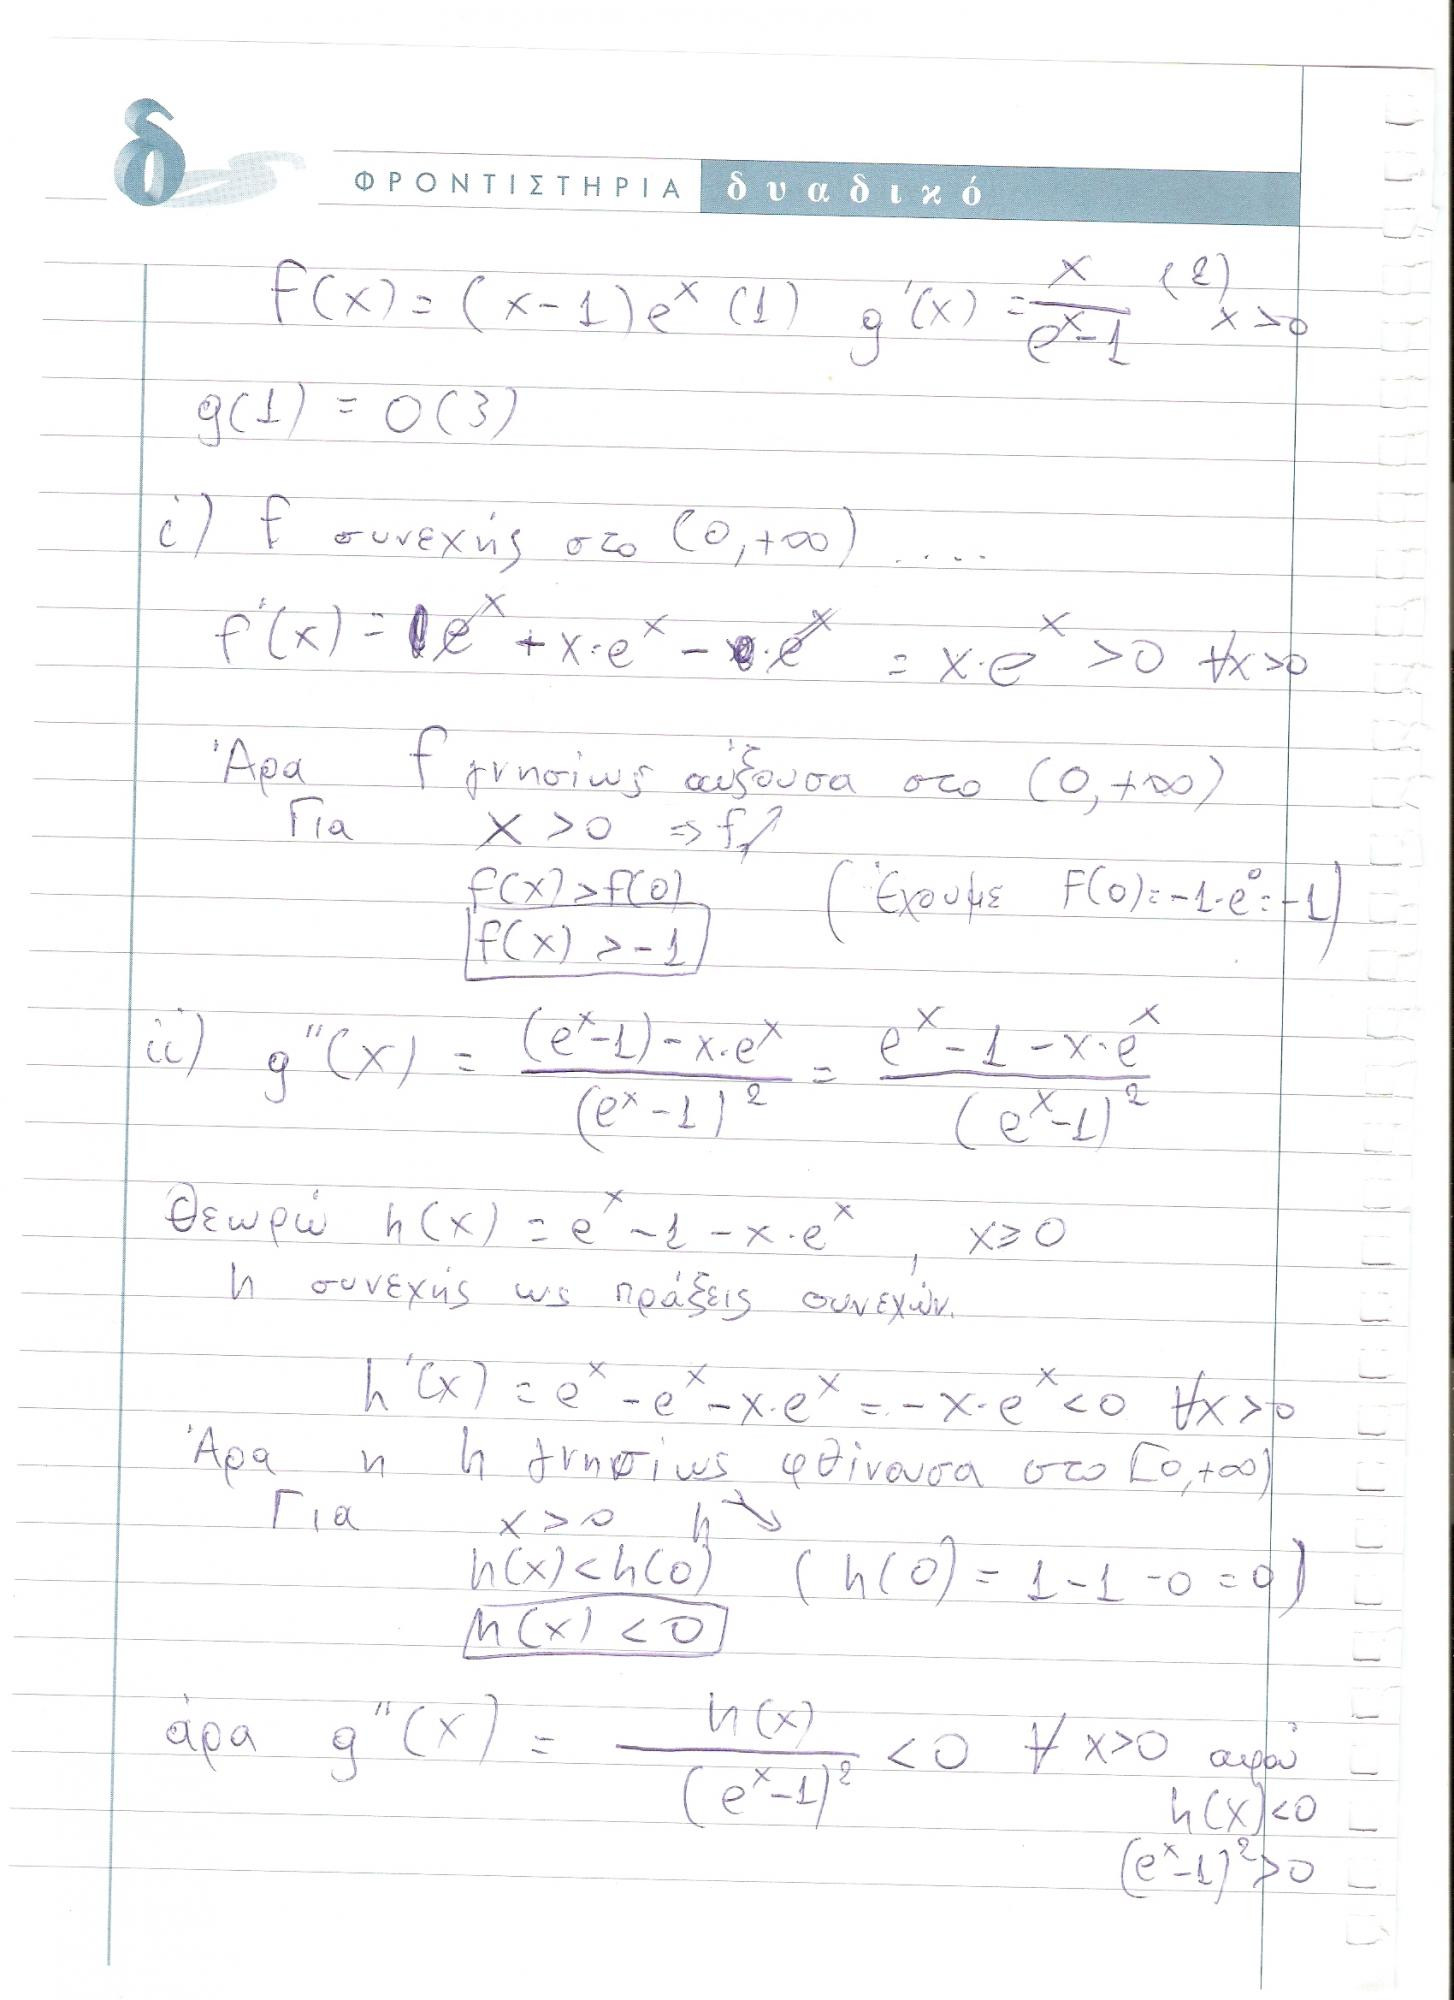 δ
ΦΡΟΝΤΙΣΤΗΡΙΑ δυαδικό
f(x) = (x-1)e^x (1) g'(x) = x/(e^x-1) (2) x>0
g(1) = 0 (3)
i) f συνεχής στο (0,+∞) ....
f'(x) = e^x + x·e^x - e^x = x·e^x >0 ∀x>0
Άρα f γνησίως αύξουσα στο (0,+∞)
Για x>0 ⇒ f↗
f(x)>f(0) (Έχουμε F(0)=-1·e^0=-1)
f(x) > -1
ii) g''(x) = ((e^x-1)-x·e^x)/(e^x-1)^2 = (e^x-1-x·e^x)/(e^x-1)^2
Θεωρώ h(x) = e^x-1-x·e^x, x≥0
h συνεχής ως πράξεις συνεχών.
h'(x) = e^x-e^x-x·e^x = -x·e^x<0 ∀x>0
Άρα η h γνησίως φθίνουσα στο [0,+∞)
Για x>0 h↘
h(x)<h(0) (h(0)=1-1-0=0)
h(x)<0
άρα g''(x) = h(x)/(e^x-1)^2 <0 ∀ x>0 αφού
h(x)<0
(e^x-1)^2>0